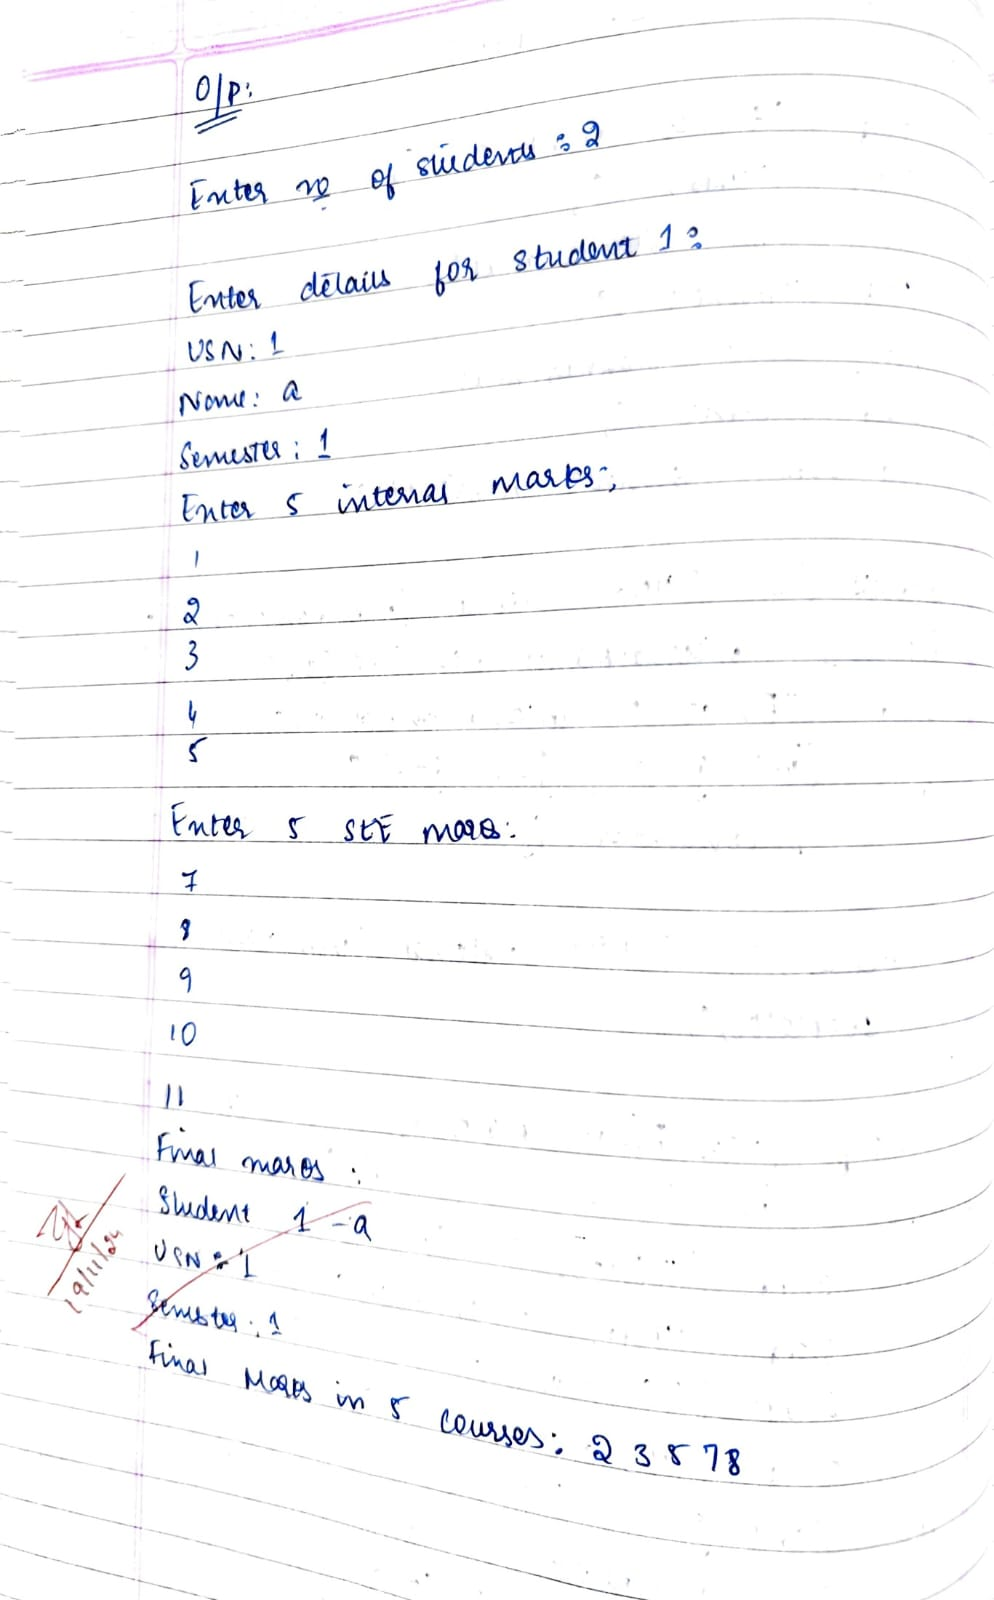 O/P:
Enter no of students : 2
Enter details for student 1:
USN: 1
Name: a
Semester: 1
Enter 5 internal marks:
1
2
3
4
5
Enter 5 SEE marks:
7
8
9
10
11
Final marks :
Student 1 - a
USN : 1
Semester: 1
Final Marks in 5 courses: 2 3 5 7 8